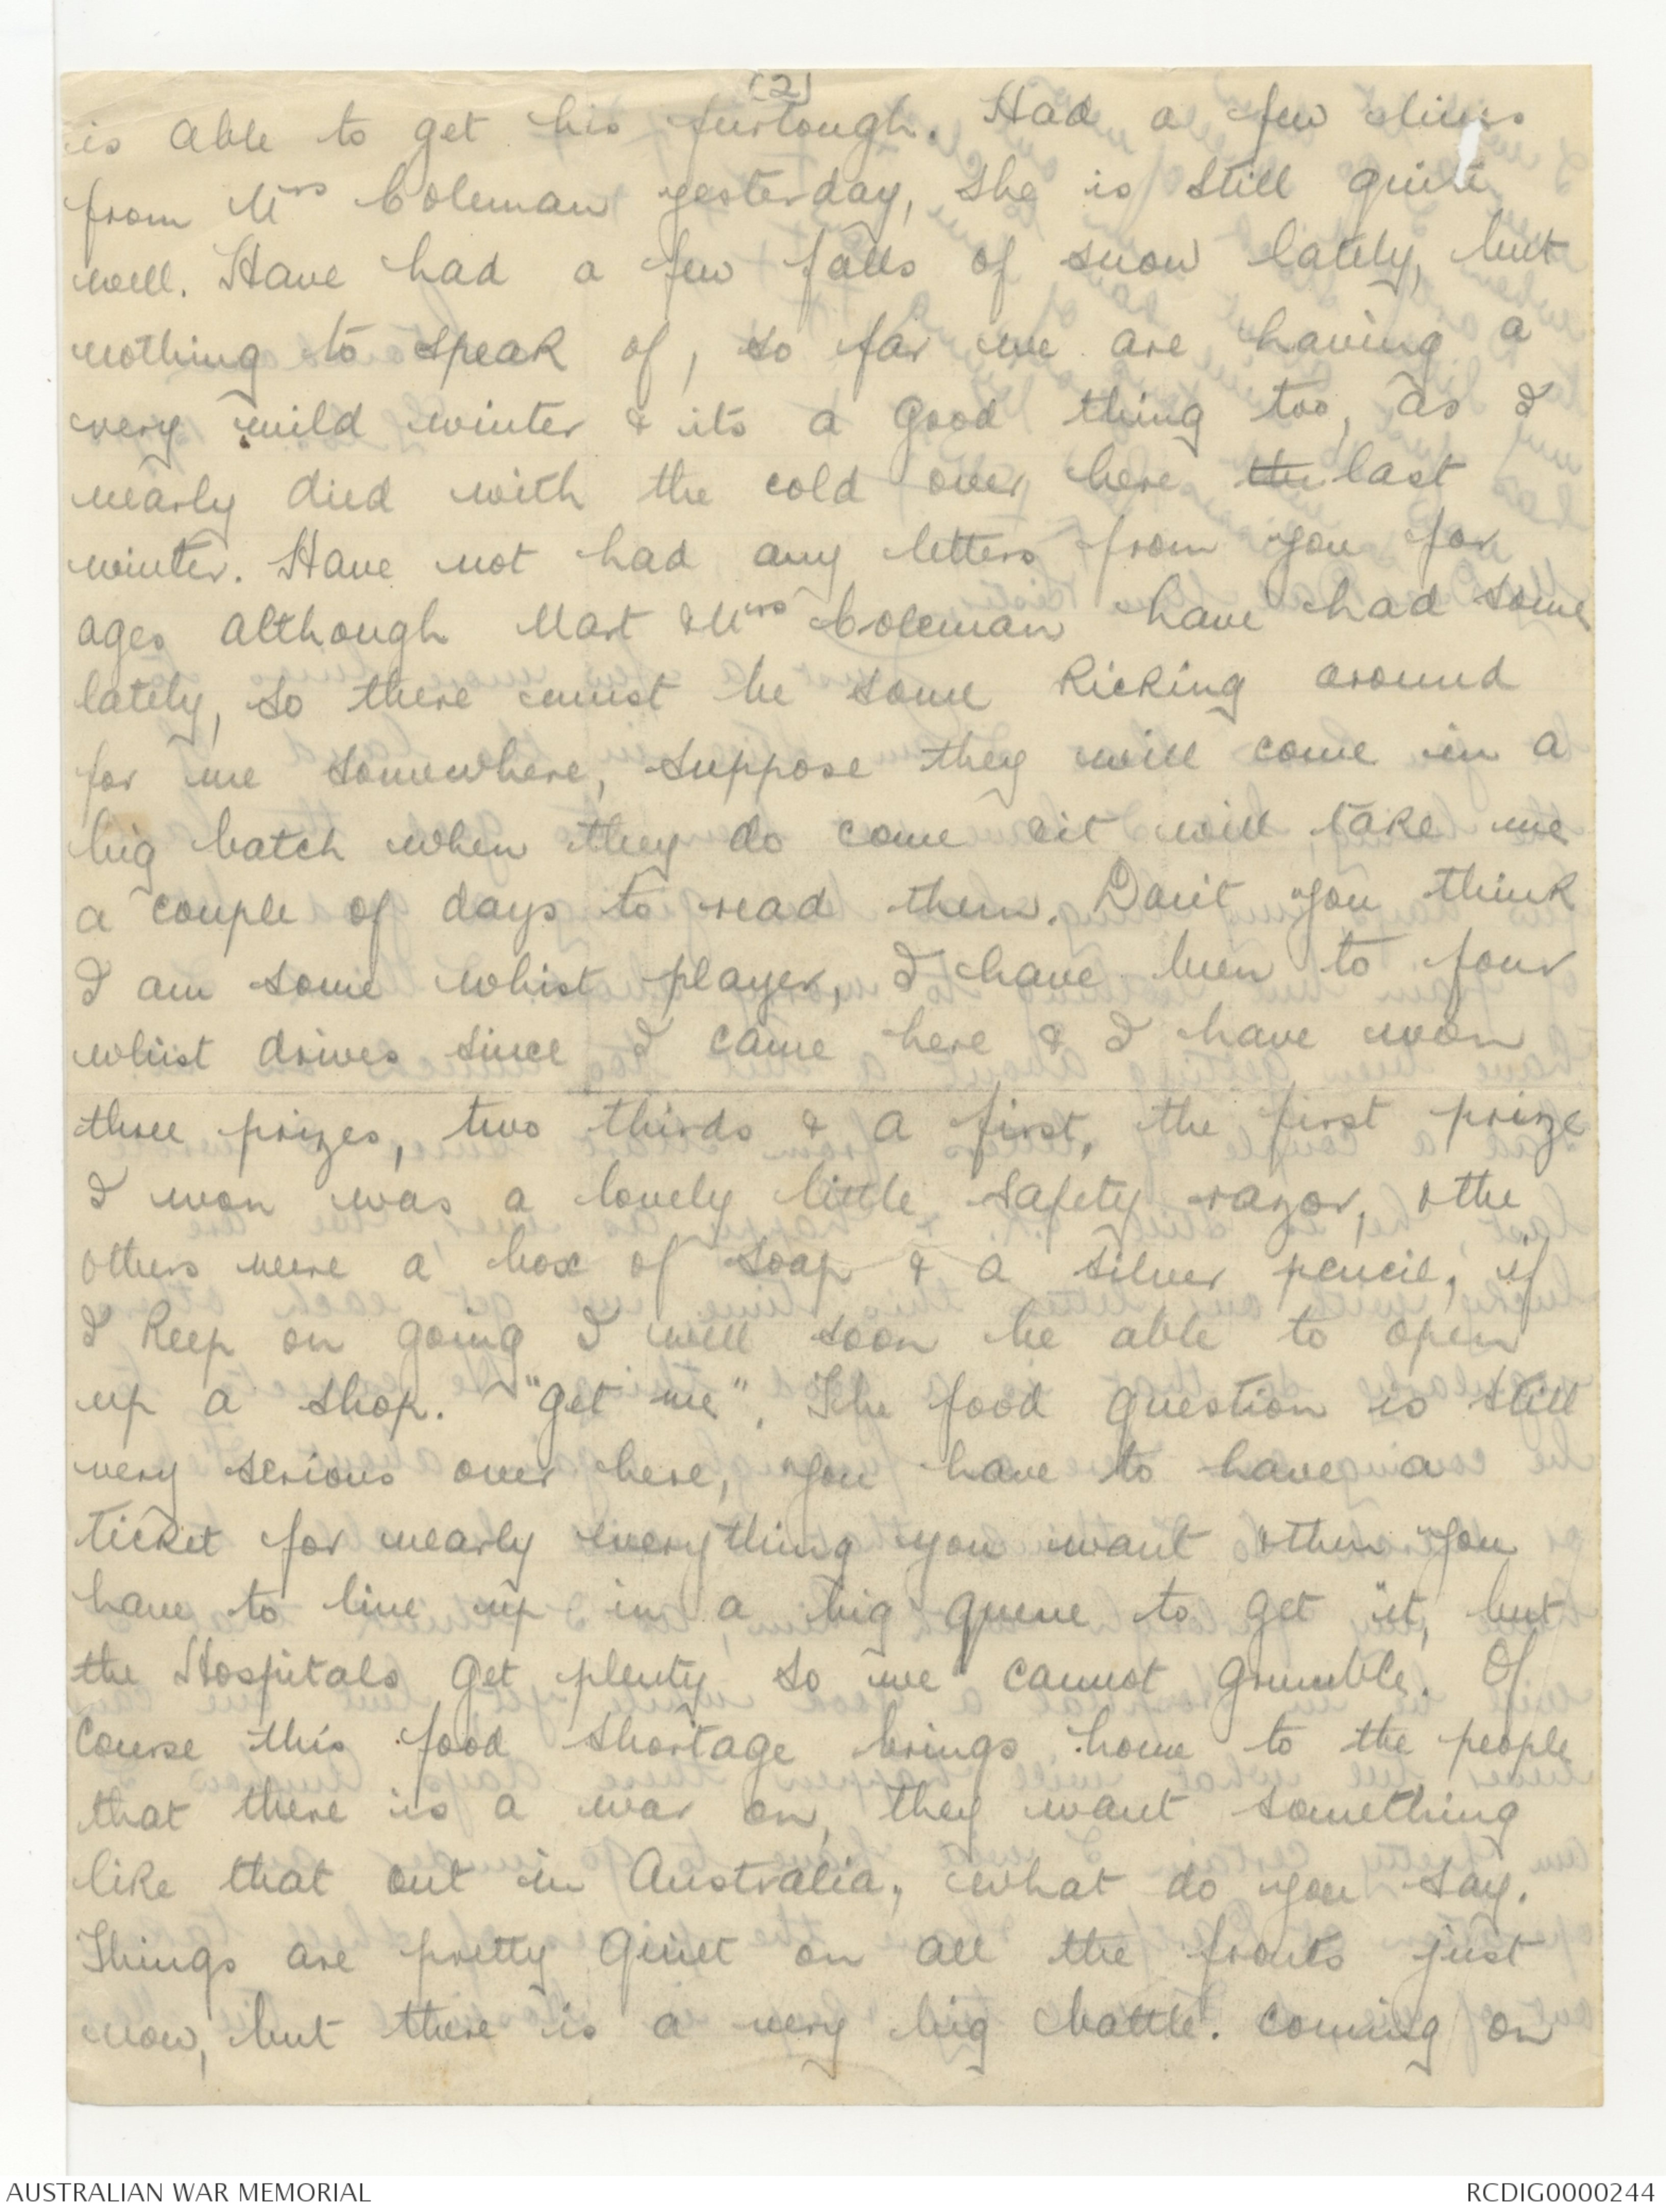 (2)
is able to get his furlough. Had a few lines
from Mrs Coleman yesterday, she is still quite
well. Have had a few falls of snow lately, but
nothing to speak of, so far we are having a
very mild winter & its a good thing too, as I
nearly died with the cold over here the last
winter. Have not had any letters from you for
ages although Mart & Mrs Coleman have had some
lately, so there must be some kicking around
for me somewhere, suppose they will come in a
big batch when they do come & it will take me
a couple of days to read them. Don't you think
I am some whist player, I have been to four
whist drives since I came here & I have won
three prizes, two thirds & a first, the first prize
I won was a lovely little safety razor, & the
others were a box of soap & a silver pencil, if
I keep on going I will soon be able to open
up a shop. "Get me". The food question is still
very serious over here, you have to have a
ticket for nearly everything you want & then you
have to line up in a big queue to get it, but
the Hospitals get plenty so we cannot grumble. Of
course this food shortage brings home to the people
that there is a war on, they want something
like that out in Australia, what do you say.
Things are pretty quiet on all the fronts just
now, but there is a very big battle. coming on
AUSTRALIAN WAR MEMORIAL
RCDIG0000244